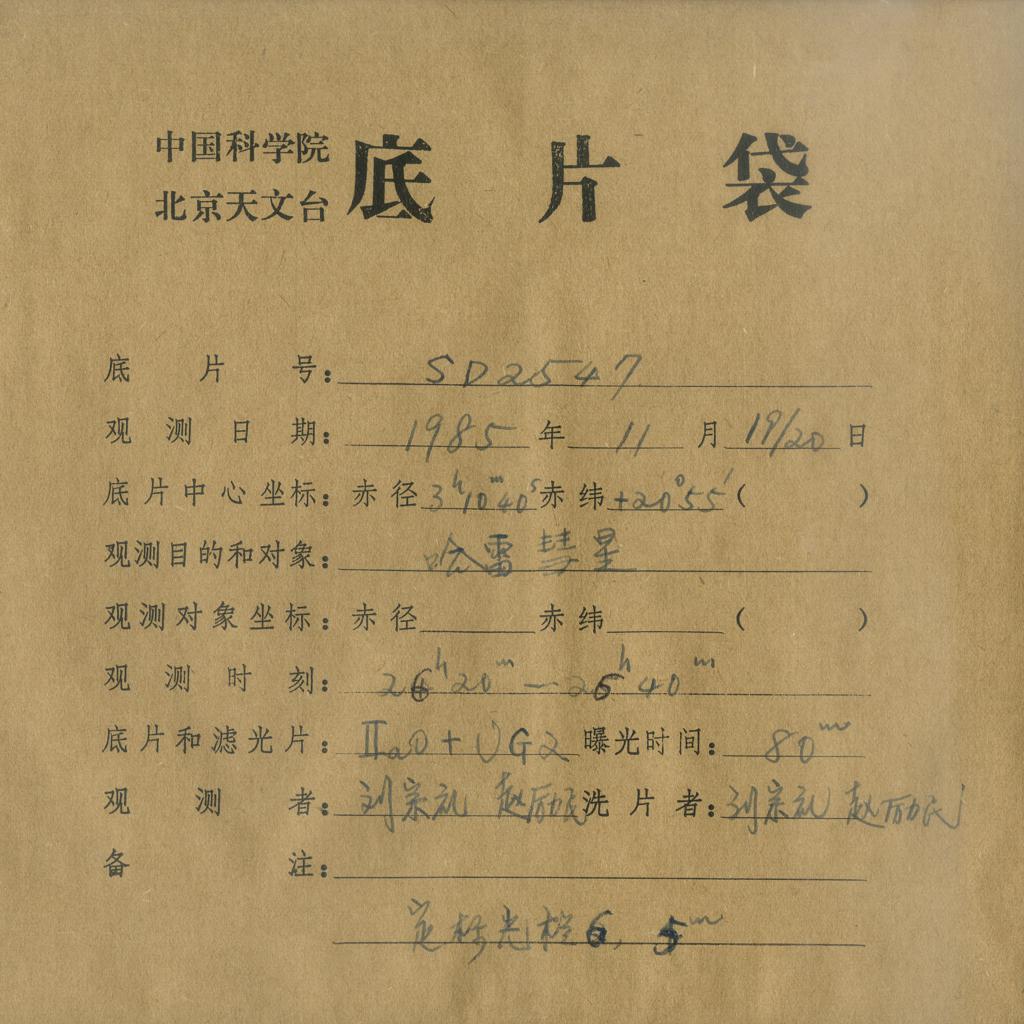 中国科学院
北京天文台 底片袋
底片号：SD2547
观测日期：1985年11月19/20日
底片中心坐标：赤径3ʰ10ᵐ40ˢ赤纬+20°55′（ ）
观测目的和对象：哈雷彗星
观测对象坐标：赤径 赤纬 （ ）
观测时刻：20ᵐ—26ʰ40ᵐ
底片和滤光片：IIaO+UG2 曝光时间：80ᵐ
观测者：刘宗礼 赵励民 洗片者：刘宗礼 赵励民
备注：
定标光栏6, 5ᵐ